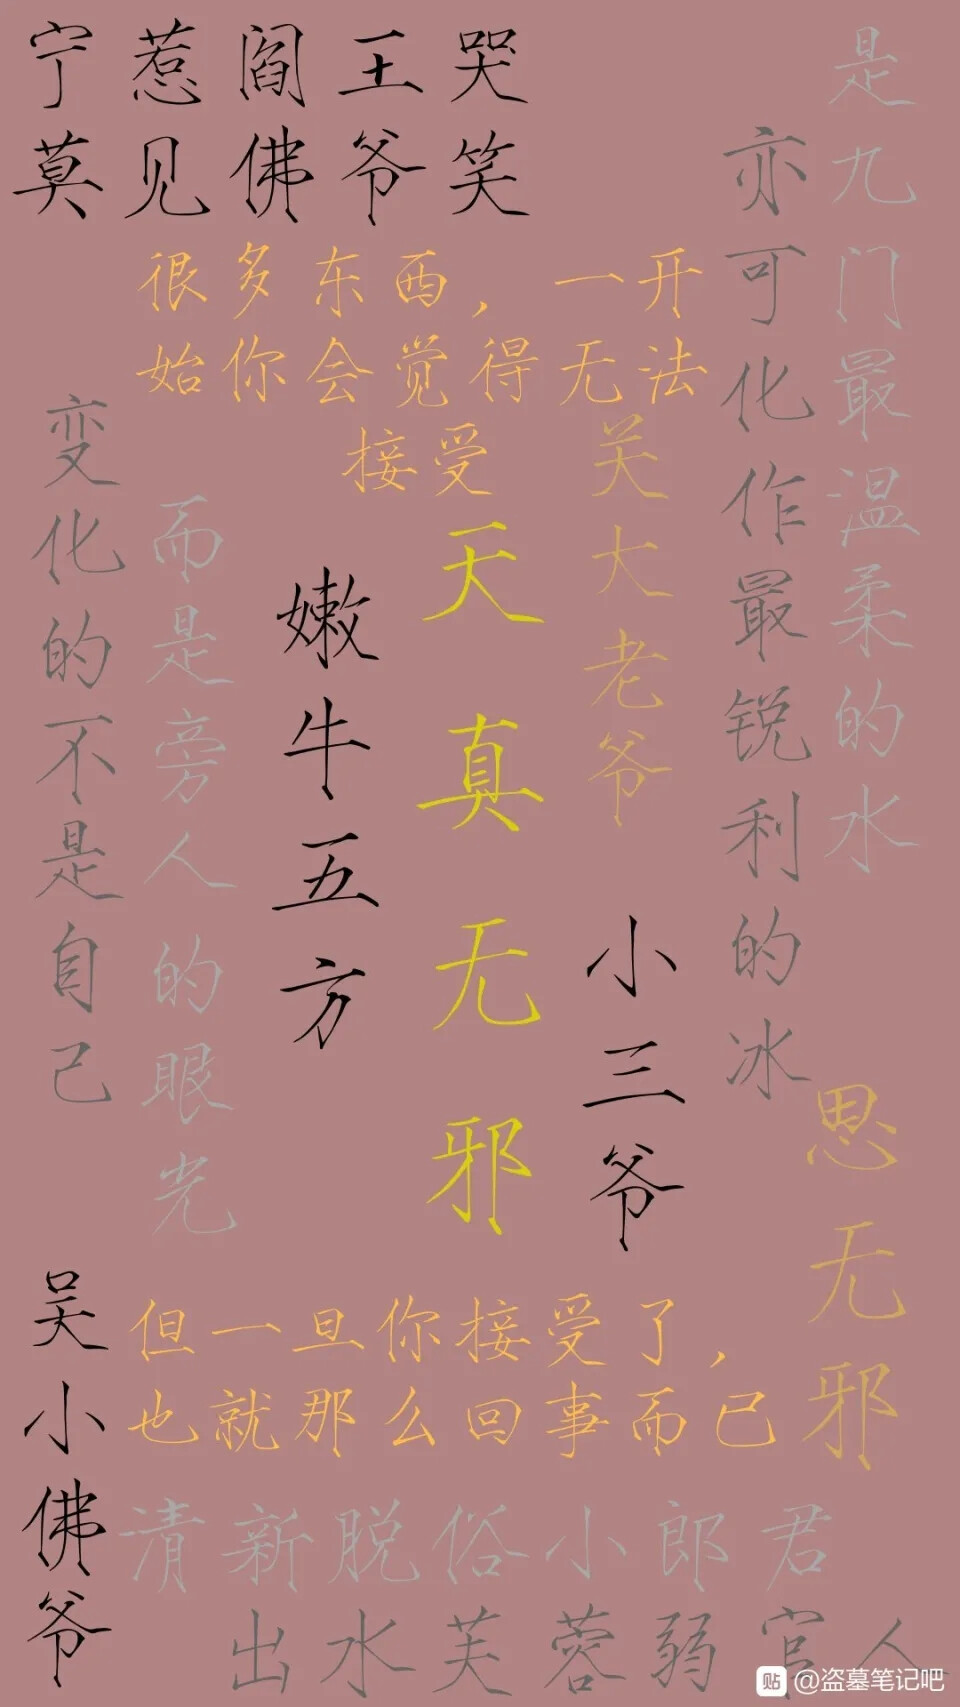 宁惹阎王哭
莫见佛爷笑
很多东西，一开
始你会觉得无法
接受
是九门最温柔的水
亦可化作最锐利的冰
关大老爷
天真无邪
嫩牛五方
小三爷
变化的不是自己
而是旁人的眼光
思无邪
吴小佛爷
但一旦你接受了，
也就那么回事而已
清新脱俗小郎君
出水芙蓉弱官人
贴 @盗墓笔记吧